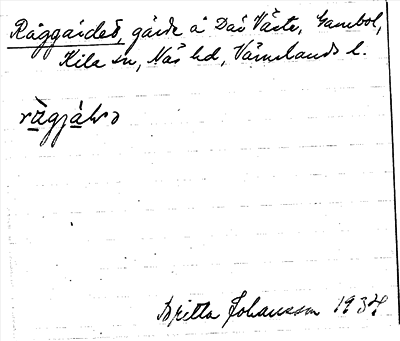 Råggärdet, gärde å Dav Väste, Gambol,
Kila sn, Näs hd, Värmlands l.
Britta Johansson 1934